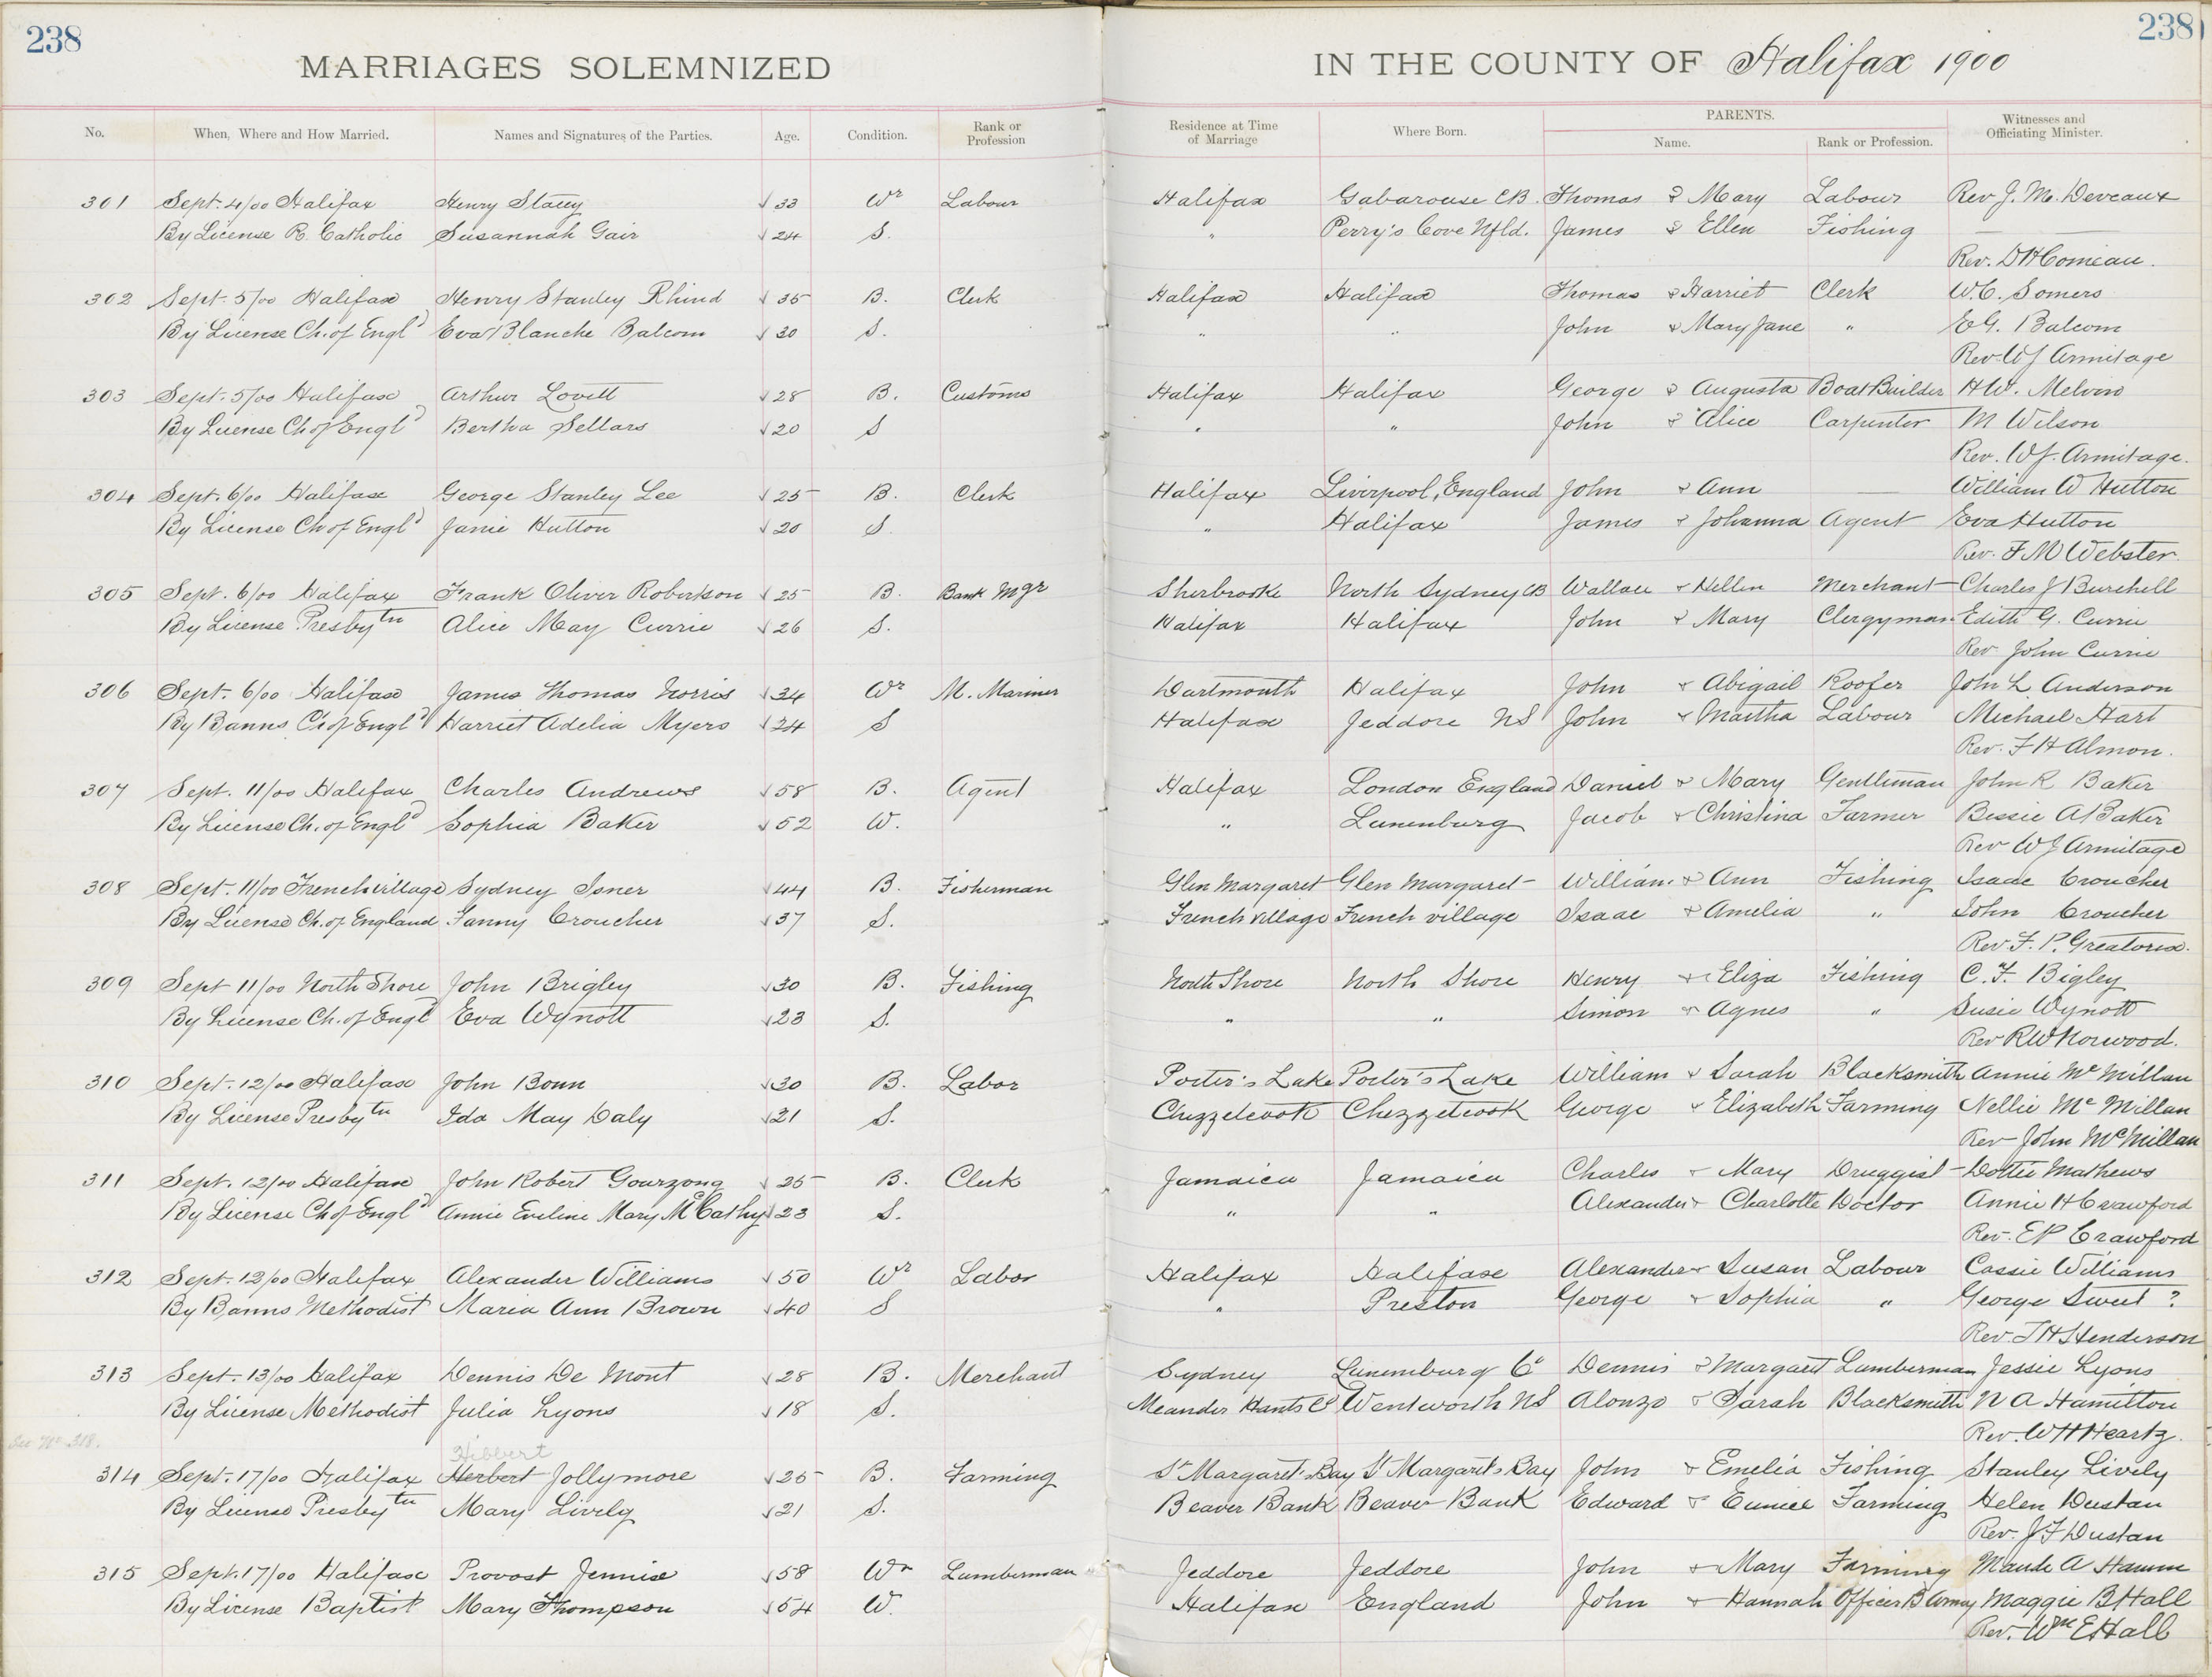 238
238
MARRIAGES SOLEMNIZED IN THE COUNTY OF Halifax 1900
No. When, Where and How Married. Names and Signatures of the Parties. Age. Condition. Rank or Profession Residence at Time of Marriage Where Born. PARENTS. Name. Rank or Profession. Witnesses and Officiating Minister.
301 Sept. 4/00 Halifax Henry Stacey √ 33 Wr Labour Halifax Gabarouse CB. Thomas & Mary Labour Rev J. M. Deveaux
By License R. Catholic Susannah Gair √ 24 S. " Perry's Cove Nfld. James & Ellen Fishing — —
Rev. D H Comeau.
302 Sept. 5/00 Halifax Henry Stanley Rhind √ 35 B. Clerk Halifax Halifax Thomas & Harriet Clerk W.C. Somers
By License Ch. of Engld Eva Blanche Balcom √ 30 S. " " John & Mary Jane " E G. Balcom
Rev. W J Armitage
303 Sept. 5/00 Halifax Arthur Lovett √ 28 B. Customs Halifax Halifax George & Augusta Boat Builder H W. Melvin
By License Ch of Engld Bertha Sellars √ 20 S " " John & Alice Carpenter M Wilson
Rev. W J. Armitage.
304 Sept. 6/00 Halifax George Stanley Lee √ 25 B. Clerk Halifax Liverpool, England John & Ann — William W Hutton
By License Ch of Engld Janie Hutton √ 20 S. " Halifax James & Johanna Agent Eva Hutton
Rev. F M Webster.
305 Sept. 6/00 Halifax Frank Oliver Robertson √ 25 B. Bank Mgr Sherbrooke North Sydney CB Wallace & Hellen Merchant Charles J Burchell
By License Presbytn Alice May Currie √ 26 S. Halifax Halifax John & Mary Clergyman Edith G. Currie
Rev. John Currie
306 Sept. 6/00 Halifax James Thomas Norris √ 34 Wr M. Mariner Dartmouth Halifax John & Abigail Roofer John L. Anderson
By Banns Ch of Engld Harriet Adelia Myers √ 24 S Halifax Jeddore NS John & Martha Labour Michael Hart
Rev. F H Almon.
307 Sept. 11/00 Halifax Charles Andrews √ 58 B. Agent Halifax London England Daniel & Mary Gentleman John R Baker
By License Ch. of Engld Sophia Baker √ 52 W. " Lunenburg Jacob & Christina Farmer Bessie A Baker
Rev W J Armitage
308 Sept. 11/00 French village Sydney Isner √ 44 B. Fisherman Glen Margaret Glen Margaret William & Ann Fishing Isaac Croucher
By License Ch. of England Fanny Croucher √ 37 S. French village French village Isaac & Amelia " John Croucher
Rev. F. P. Greatorex.
309 Sept 11/00 North Shore John Brigley √ 30 B. Fishing North Shore North Shore Henry & Eliza Fishing C. F. Bigley
By License Ch. of Engld Eva Wynott √ 23 S. " " Simon & Agnes " Susie Wynott
Rev R W Norwood.
310 Sept. 12/00 Halifax John Bonn √ 30 B. Labor Porter's Lake Porter's Lake William & Sarah Blacksmith Annie Mc Millan
By License Presbytn Ida May Daly √ 21 S. Chezzetcook Chezzetcook George & Elizabeth Farming Nellie Mc Millan
Rev John McMillan
311 Sept. 12/00 Halifax John Robert Gourzong √ 25 B. Clerk Jamaica Jamaica Charles & Mary Druggist Dottie Mathews
By License Ch of Engld Annie Eveline Mary McCathy √ 23 S. " " Alexander & Charlotte Doctor Annie H Crawford
Rev. E P Crawford
312 Sept. 12/00 Halifax Alexander Williams √ 50 Wr Labor Halifax Halifax Alexander & Susan Labour Cassie Williams
By Banns Methodist Maria Ann Brown √ 40 S " Preston George & Sophia " George Sweet ?
Rev. T H S Henderson
313 Sept. 13/00 Halifax Dennis De Mont √ 28 B. Merchant Sydney Lunenburg Co Dennis & Margaret Lumberman Jessie Lyons
By License Methodist Julia Lyons √ 18 S. Meander Hants Co Wentworth NS Alonzo & Sarah Blacksmith N A Hamilton
Rev. W H Heartz.
See No. 318. Hibbert
314 Sept. 17/00 Halifax Herbert Jollymore √ 25 B. Farming St Margaret's Bay St Margarets Bay John & Emelia Fishing Stanley Lively
By License Presbytn Mary Lively √ 21 S. Beaver Bank Beaver Bank Edward & Eunice Farming Helen Dustan
Rev. J F Dustan
315 Sept. 17/00 Halifax Provost Jennise √ 58 Wr Lumberman Jeddore Jeddore John & Mary Farming Maude A Hamm
By License Baptist Mary Thompson √ 54 W. Halifax England John & Hannah Officer B Army Maggie B Hall
Rev. Wm E Hall